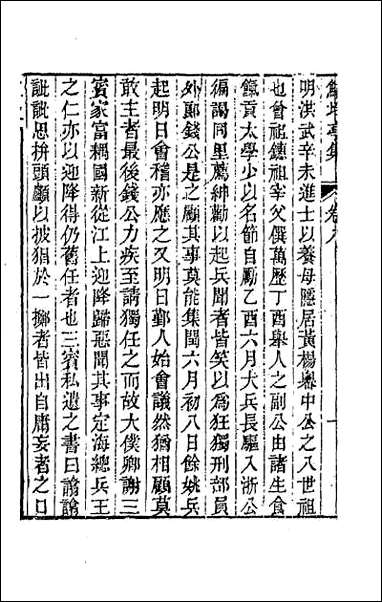 鮚埼亭集 卷九 一
明洪武辛未進士以養母隱居黃楊嶴中公之八世祖
也曾祖鏓祖宰父僎萬歷丁酉舉人之副公由諸生食
餼貢太學少以名節自勵乙酉六月大兵長驅入浙公
徧謁同里薦紳勸以起兵聞者皆笑以為狂獨刑部員
外郎錢公是之顧其事莫能集閏六月初八日餘姚兵
起明日會稽亦應之又明日鄞人始會議然猶相顧莫
敢主者最後錢公力疾至請獨任之而故太僕卿謝三
賓家富耦國新從江上迎降歸惡聞其事定海總兵王
之仁亦以迎降得仍舊任者也三賓私遺之書曰譎譎
訿訿思拚頭顱以披猖於一擲者皆出自庸妄者之口